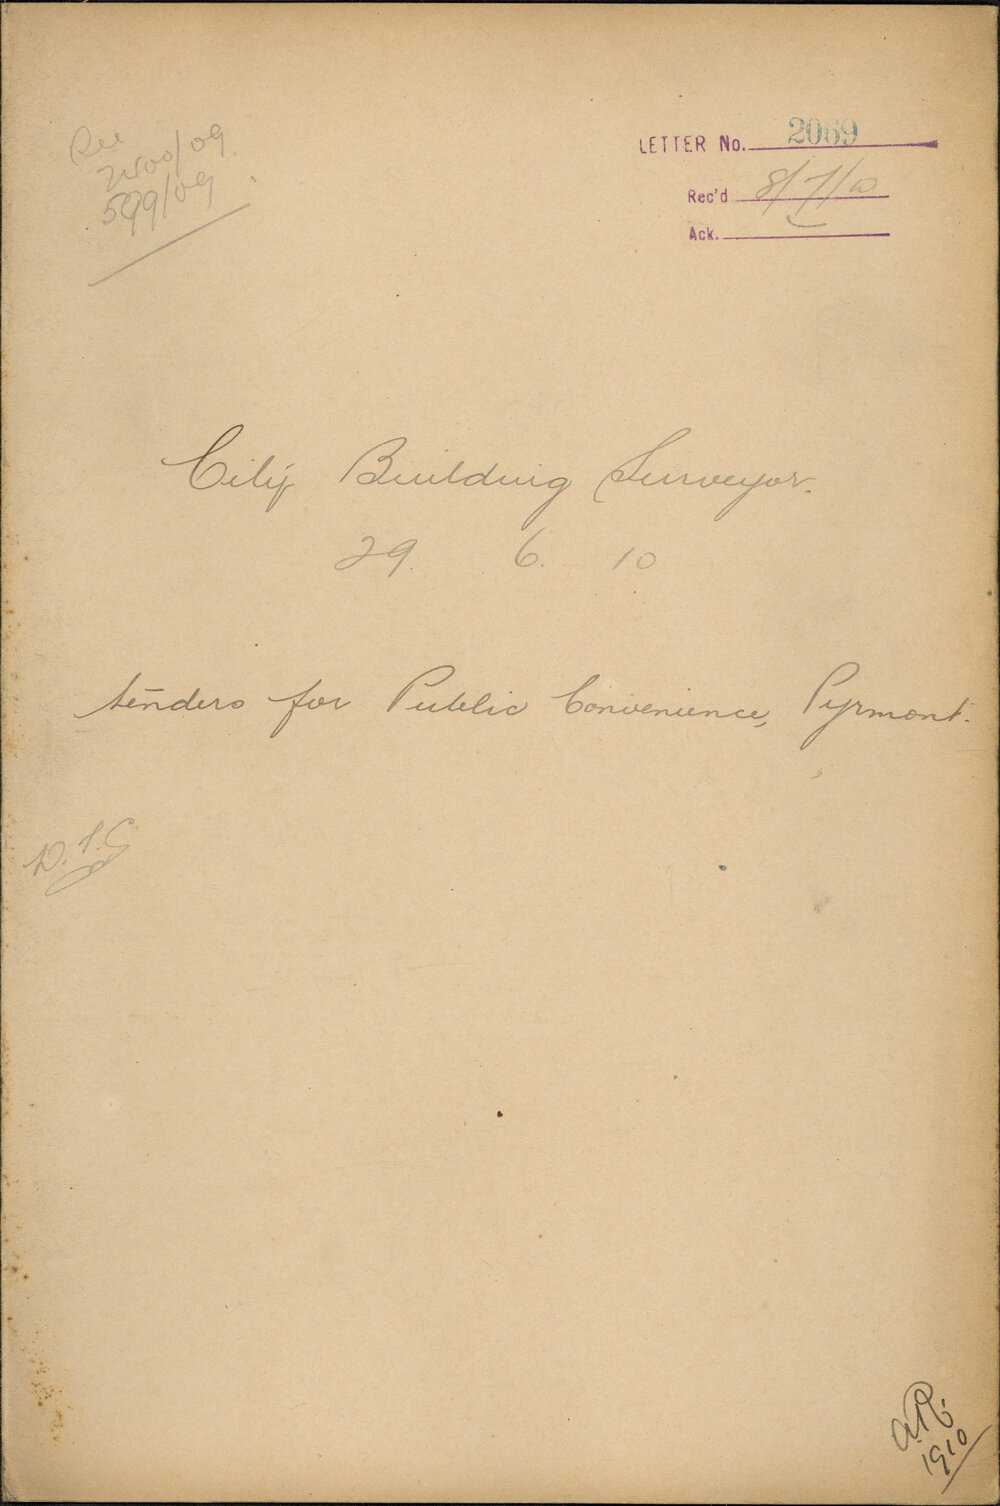 599/09
LETTER No. 2069
Rec'd 8/7/10
Ack.
City Building Surveyor.
29. 6. 10
tenders for Public Convenience, Pyrmont.
A.R.
1910